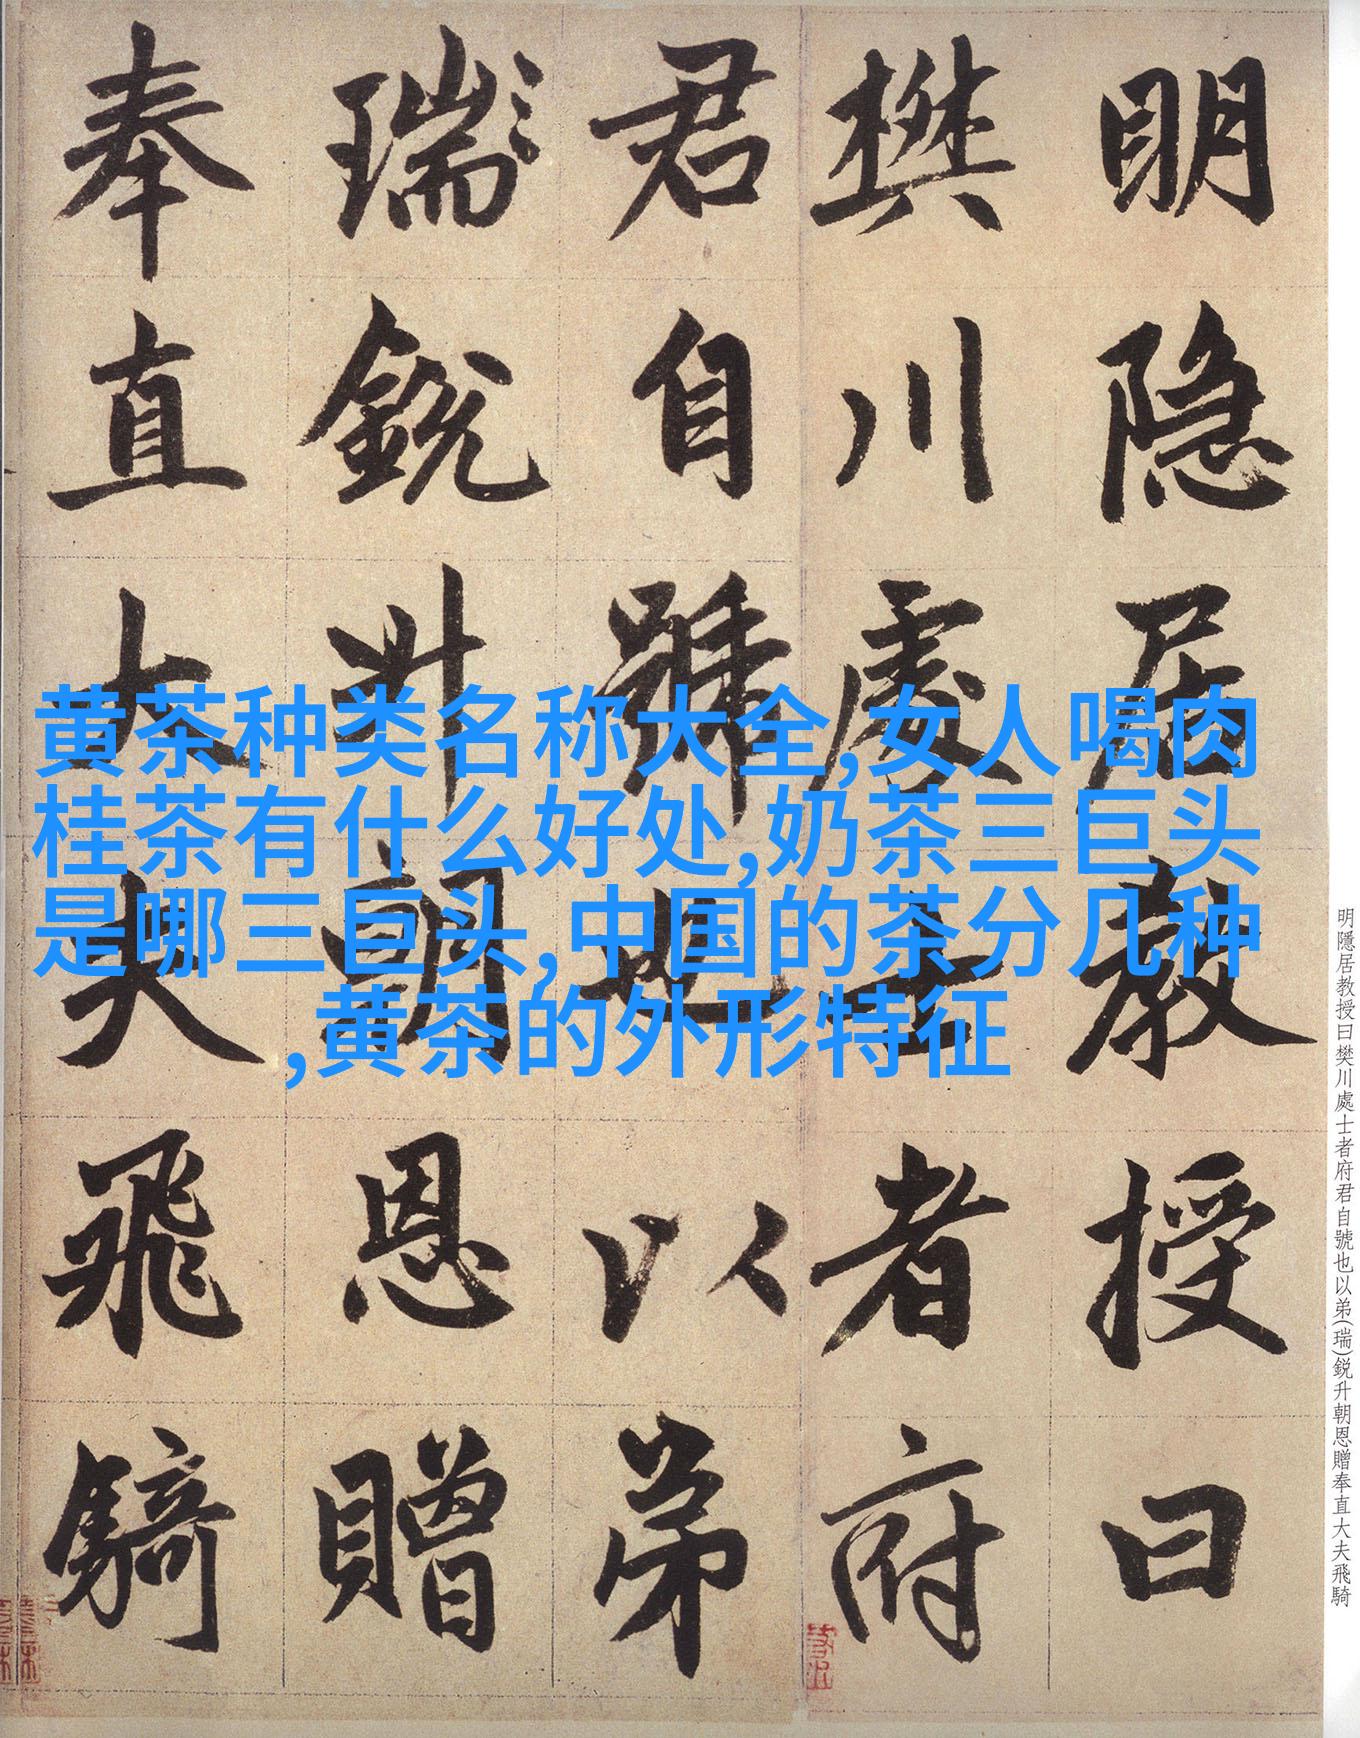 明隐居教授曰
樊川處士者府
君自號也以弟
瑞銳升朝恩贈
奉直大夫飛騎
黄茶种类名称大全,女人喝肉
桂茶有什么好处,奶茶三巨头
是哪三巨头,中国的茶分几种
,黄茶的外形特征
明隱居教授曰樊川處士者府君自號也以弟(瑞)銳升朝恩贈奉直大夫飛騎